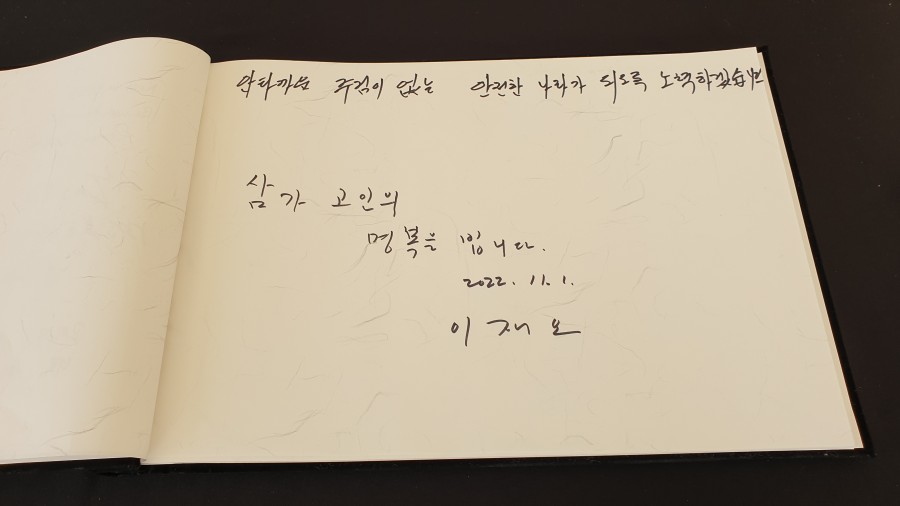 안타까운 주검이 없는 안전한 나라가 되도록 노력하겠습니다
삼가 고인의
명복을 빕니다.
2022. 11. 1.
이재오